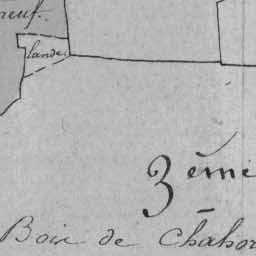 neuf.
lande
3ème
Bois de Chahor